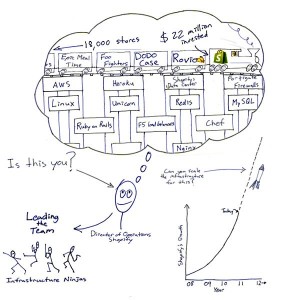 18,000 stores
$22 million
invested
Epic Meal
Time
Foo
Fighters
DODO
Case
Rovio
AWS
Heroku
Shopify's
Data Center
Fortigate
Firewalls
Linux
Unicorn
Redis
MySQL
Ruby on Rails
F5 load balancers
Chef
Nginx
Is this you?
Can you scale
the infrastructure
for this?
Leading
the
Team
Director of Operations
Shopify
Today
Shopify's Growth
08 09 10 11 12
Year
Infrastructure Ninjas